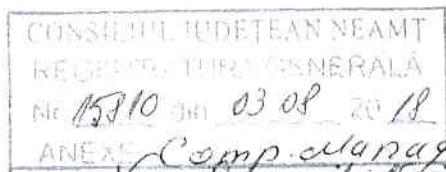 CONSILIUL JUDEȚEAN NEAMȚ
REGISTRATURA GENERALĂ
Nr 15810 din 03 08 2018
ANEXE Comp.